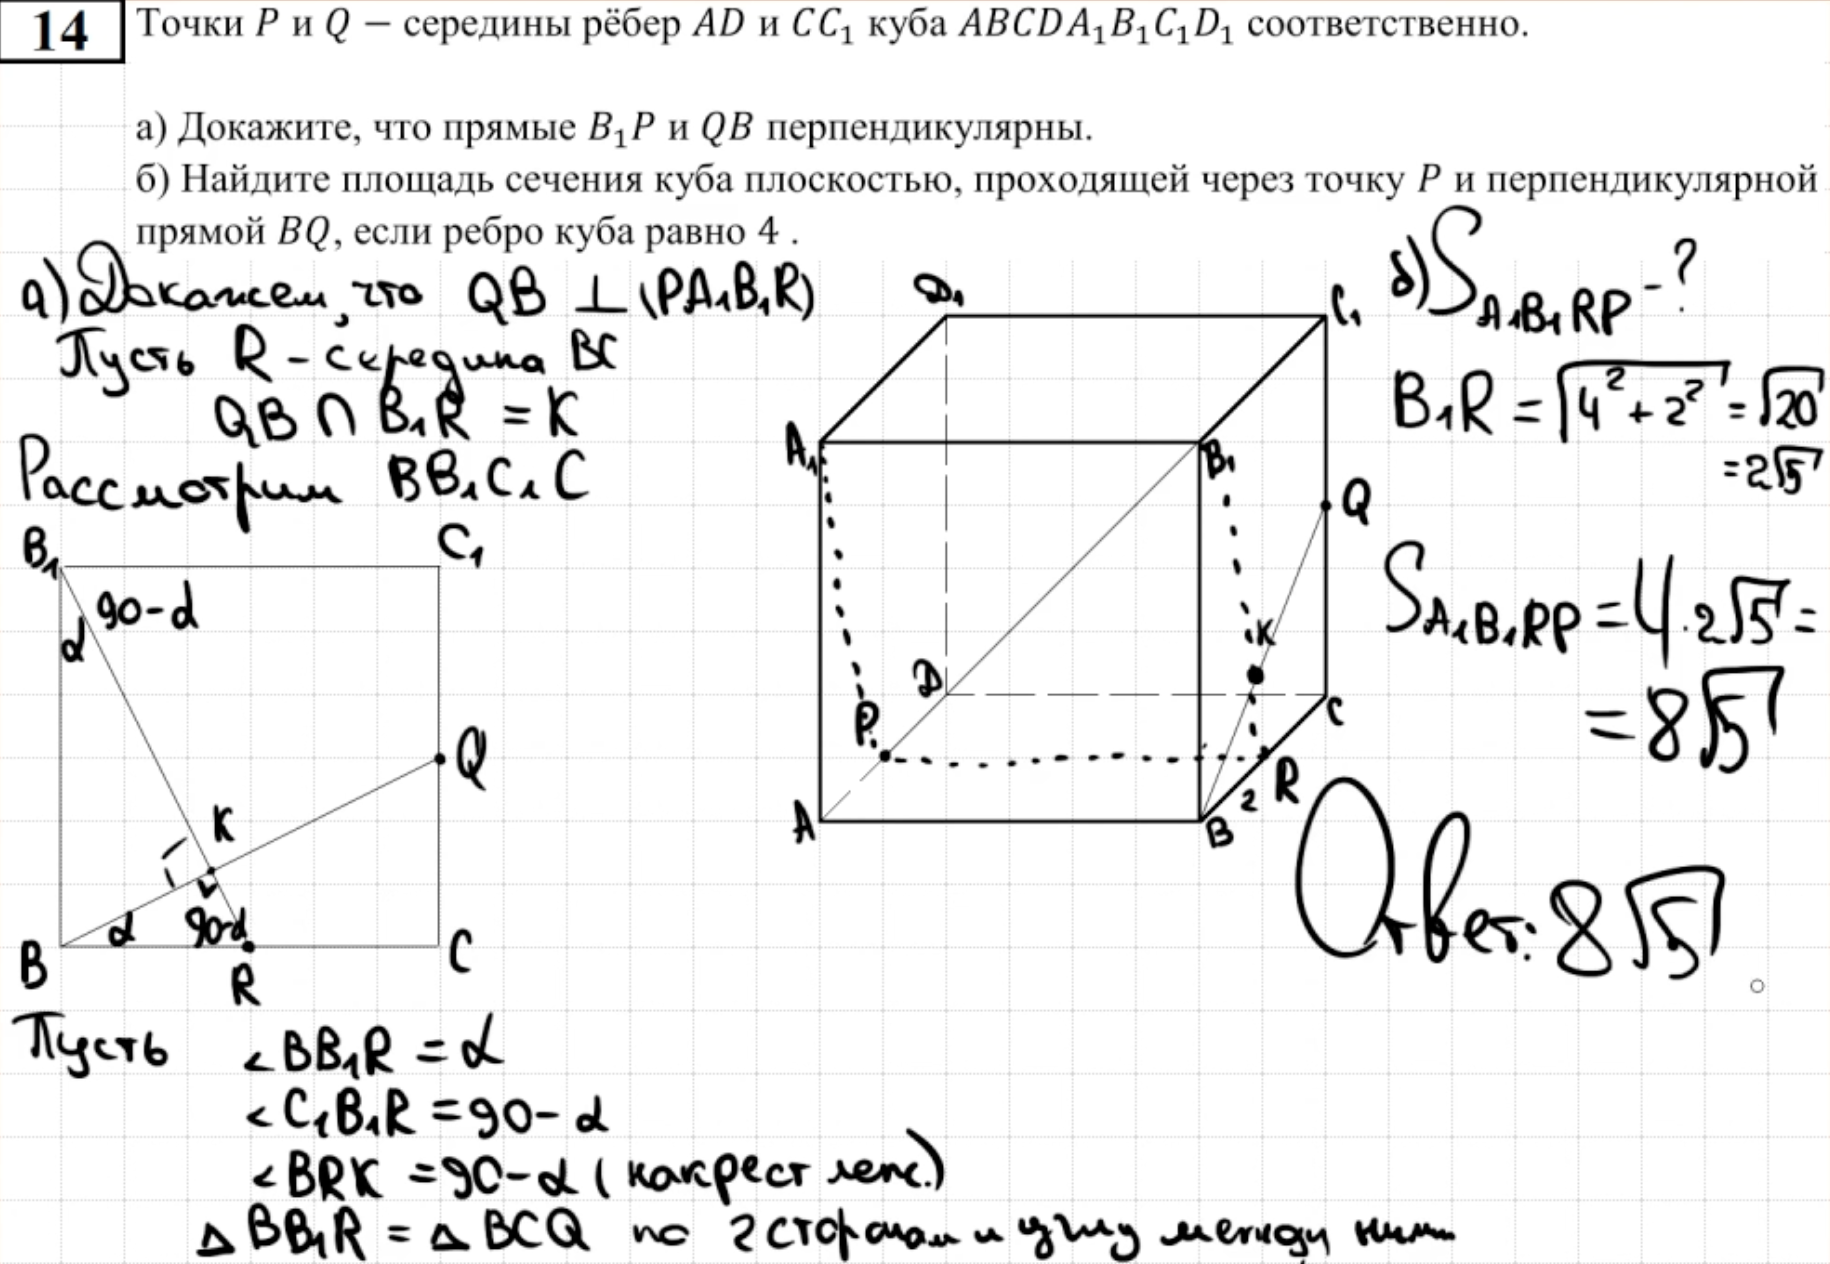 14
Точки P и Q – середины рёбер AD и CC₁ куба ABCDA₁B₁C₁D₁ соответственно.
а) Докажите, что прямые B₁P и QB перпендикулярны.
б) Найдите площадь сечения куба плоскостью, проходящей через точку P и перпендикулярной
прямой BQ, если ребро куба равно 4 .
а) Докажем, что QB ⊥ (PA₁B₁R)
Пусть R - середина BC
QB ∩ B₁R = K
Рассмотрим BB₁C₁C
B₁
C₁
90-α
α
Q
K
α
90-α
B
R
C
Пусть <BB₁R = α
<C₁B₁R = 90-α
<BRK = 90-α (накрест леж.)
Δ BB₁R = Δ BCQ по 2 сторонам и углу между ними
D₁
C₁
A₁
B₁
Q
K
D
P
C
R
2
A
B
б) S A₁B₁RP - ?
B₁R = √4² + 2² = √20
= 2√5
S A₁B₁RP = 4·2√5 =
= 8√5
Ответ: 8√5